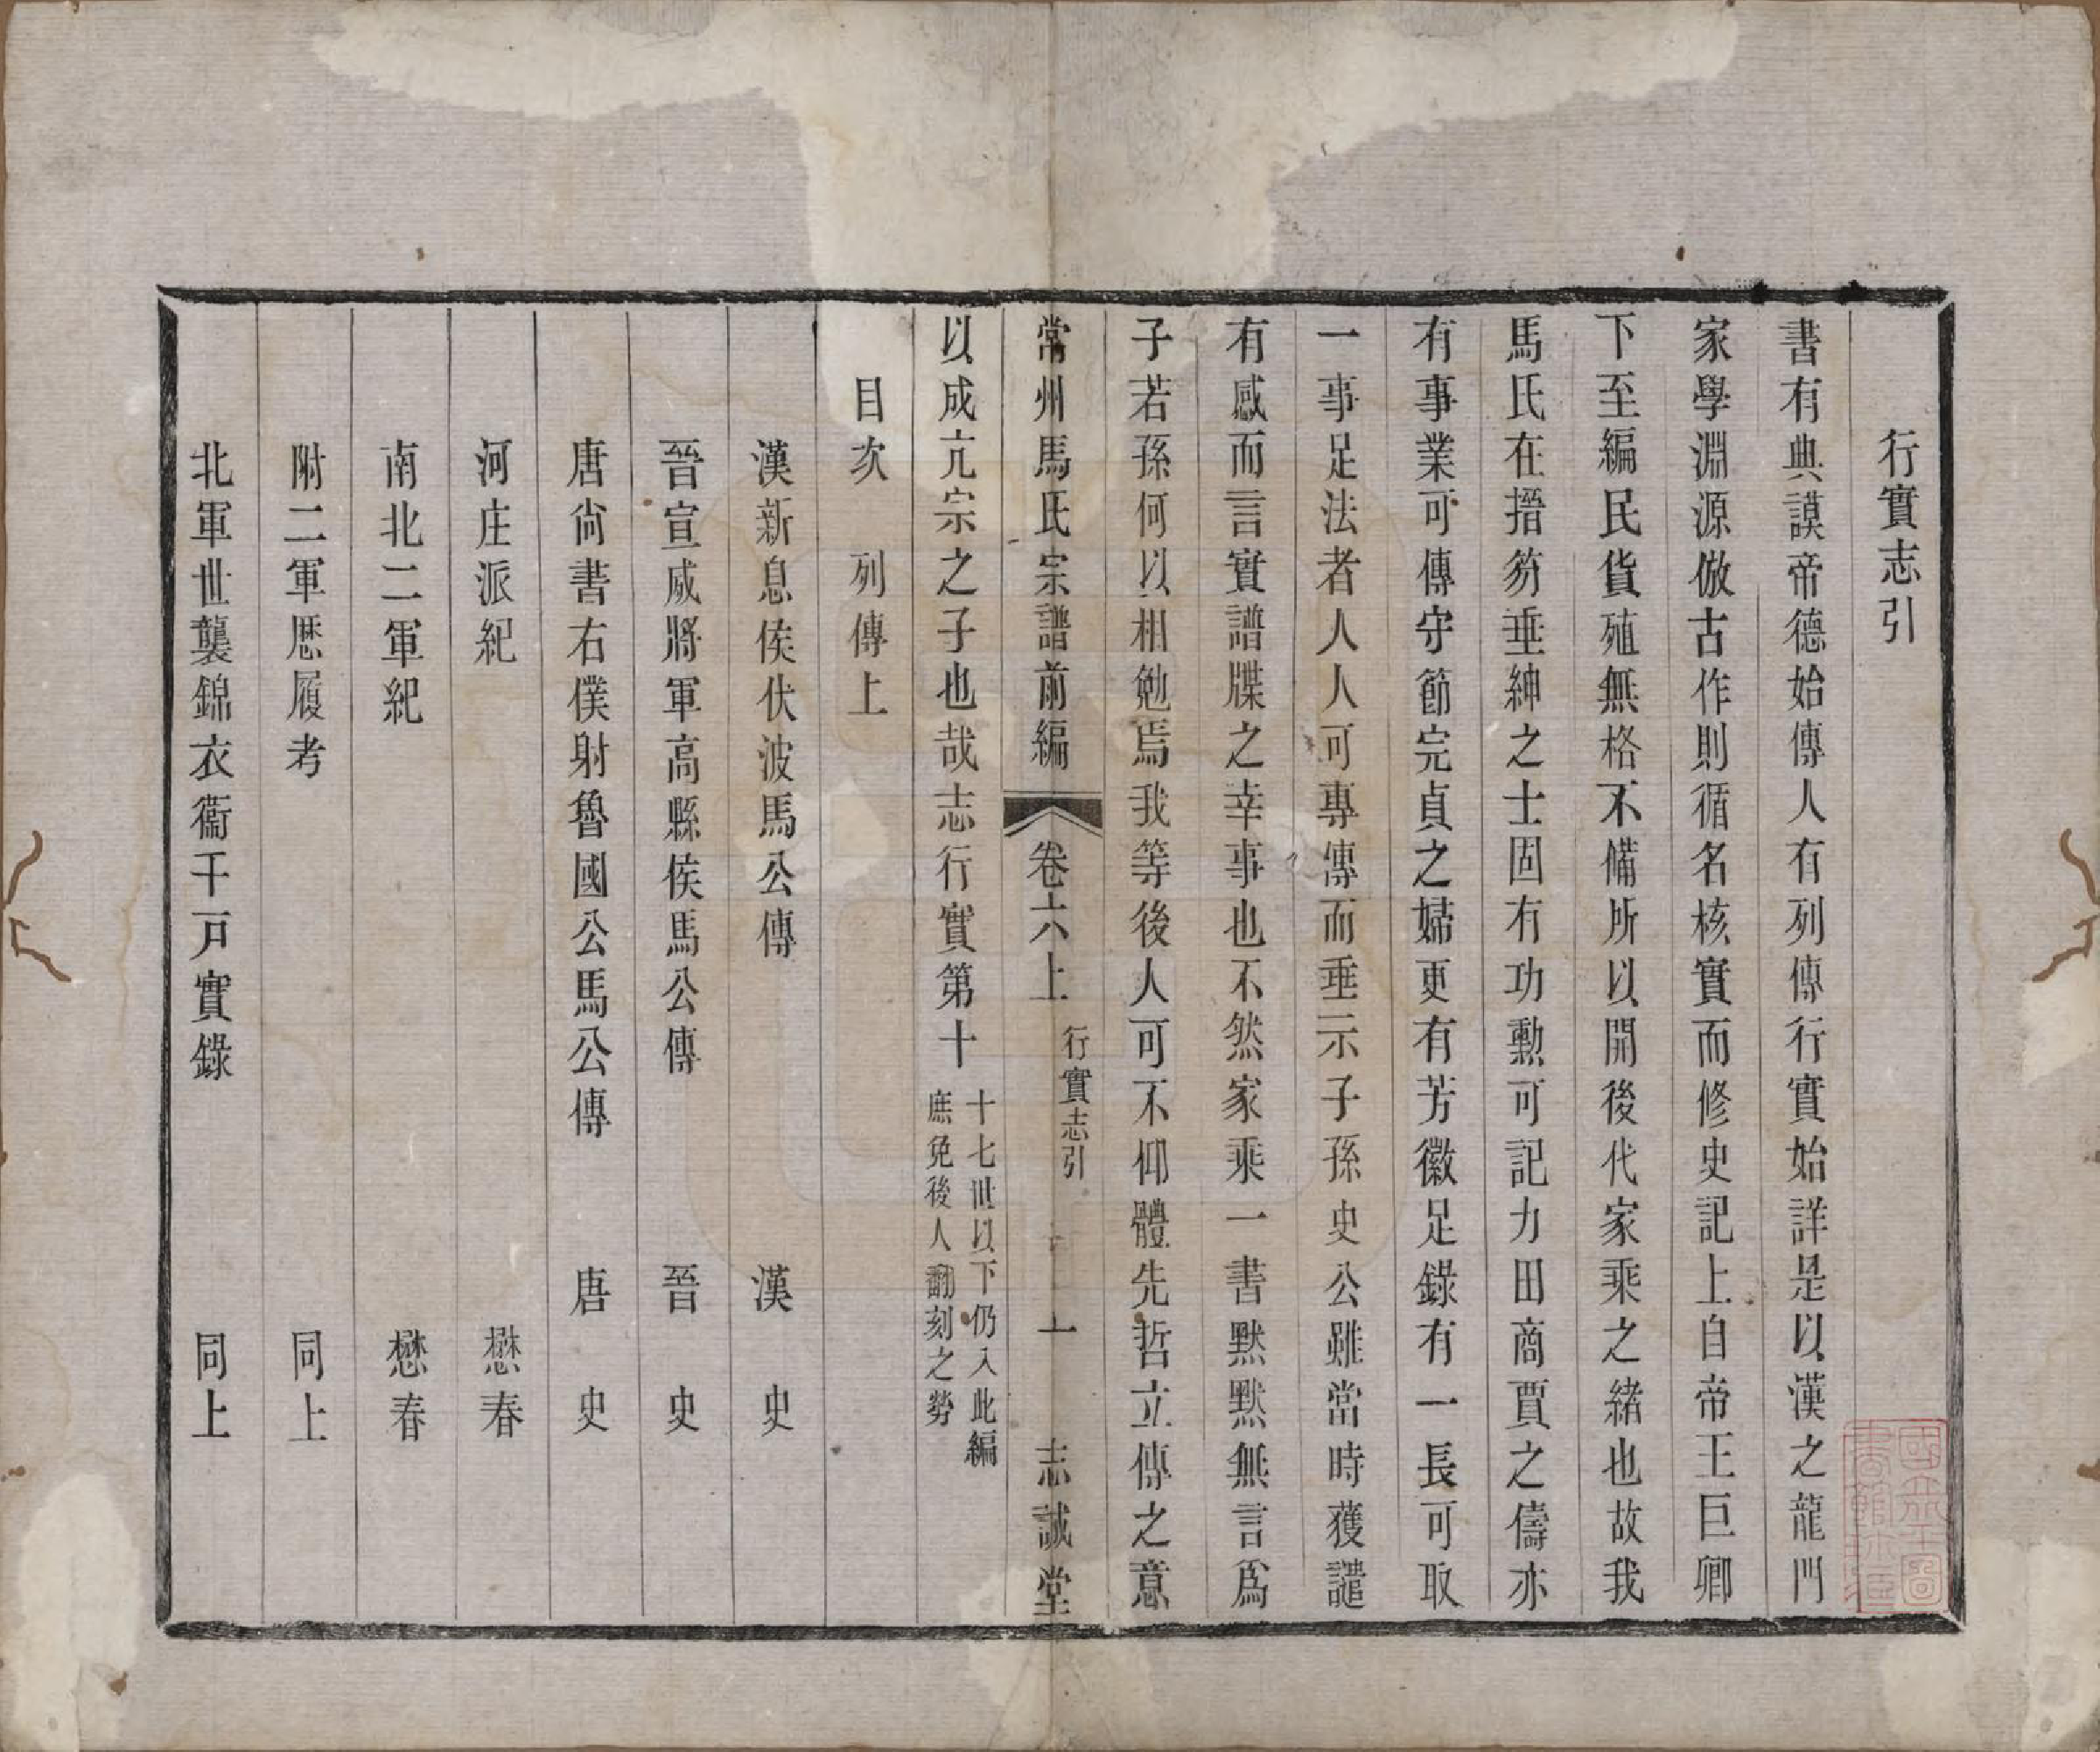 行實志引
書有典謨帝德始傳人有列傳行實始詳是以漢之龍門
家學淵源倣古作則循名核實而修史記上自帝王巨卿
下至編民貨殖無格不備所以開後代家乘之緒也故我
馬氏在搢笏垂紳之士固有功勳可記力田商賈之儔亦
有事業可傳守節完貞之婦更有芳徽足錄有一長可取
一事足法者人人可專傳而垂示子孫史公雖當時獲譴
有感而言實譜牒之幸事也不然家乘一書默默無言爲
子若孫何以相勉焉我等後人可不仰體先哲立傳之意
常州馬氏宗譜前編 卷六上 行實志引 一 志誠堂
以成亢宗之子也哉志行實第十 十七世以下仍入此編
庶免後人翻刻之勞
目次 列傳上
漢新息侯伏波馬公傳 漢史
晉宣威將軍高縣侯馬公傳 晉史
唐尙書右僕射魯國公馬公傳 唐史
河庄派紀 懋春
南北二軍紀 懋春
附二軍歷履考 同上
北軍世襲錦衣衞千戸實錄 同上